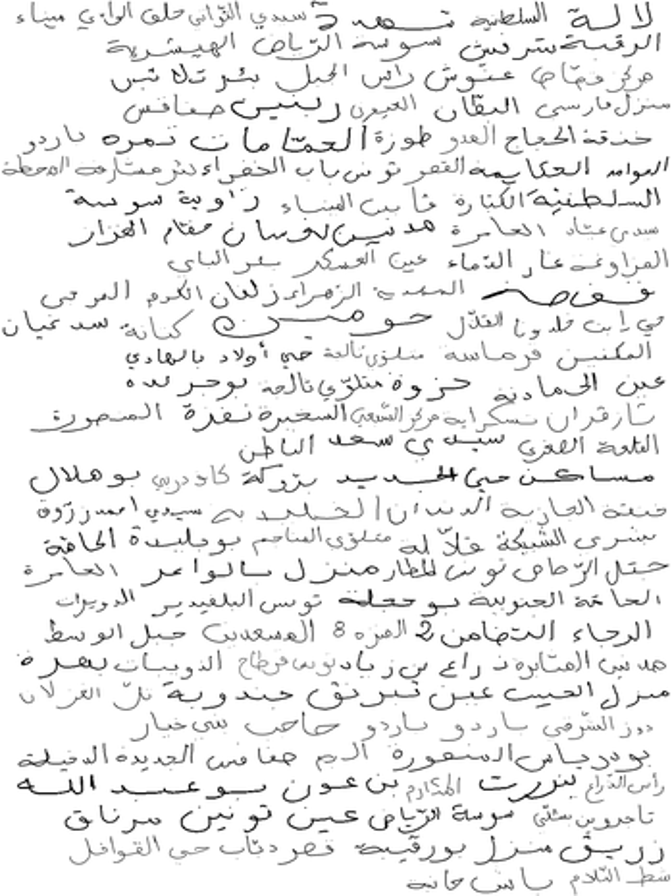 لالة السلطنية تمغزة سيدي التواتي حلق الوادي ميناء
الرقبة شرفش سوسة الرياض الهيشرية
مركز قصاص عنوش راس الجبل بئر تلاتس
منزل فارسي البقان العيون رنين صفاقس
خنقة الحجاج الغدو طوزة العمامات تمرة باردو
الحكايمة القصر تونس باب الخضراء بئر مشارقة المحطة
السلطنية الكبارة قابس الميناء زاوية سوسة
سيدي عباد العامرة مدنين نوسان مقام الهزار
المراونة غار الدماء عين العسكر بئر الباي
قفصة الزهراء زلفان الكرم الغربي
حي ابن خلدون القلال حومة كتانة سد نبهان
المكنين قرماسة متلوي تالجة حي أولاد بالهادي
عين الحمادنة حزوة متلوي تالجة بوجربدة
تازقران السكراية مركز الشعبي السخيرة نفزة المنصورة
القلعة الصغرى سيدي سعد الباطن
مساكن حي الجديد بزوكة كاودريي بوهلال
خنقة الجازية الدندان الخليدية سيدي أحمد زروق
بشري الشبيكة قلالة متلوي المناجم بوجليدة الحافة
جبل الرصاص تونس المطار منزل سالواعر العامرة
الحامة الجنوبية بوحجلة تونس البلفيدير الدويرات
الرجاء التضامن 2 المنزه 8 المسعدين جبل الوسط
مدنين المثابرة ذراع بن زياد تونس قرطاج الذويبات بهرة
منزل الحبيب عين تبرنق جندوبة تل الغزلان
دوز الشرقي باردو باردو حاجب بني خيار
بودرياس المنصورة الجم صفاقس الجديدة الدخيلة
رأس الذراع بنزرت المكارم بن عون بوعبد الله
تاجروين سوسة الرياض عين تونين مرناق
زريق منزل بورقيبة قصر دباب حي القوافل
شط السلام باش حانبة